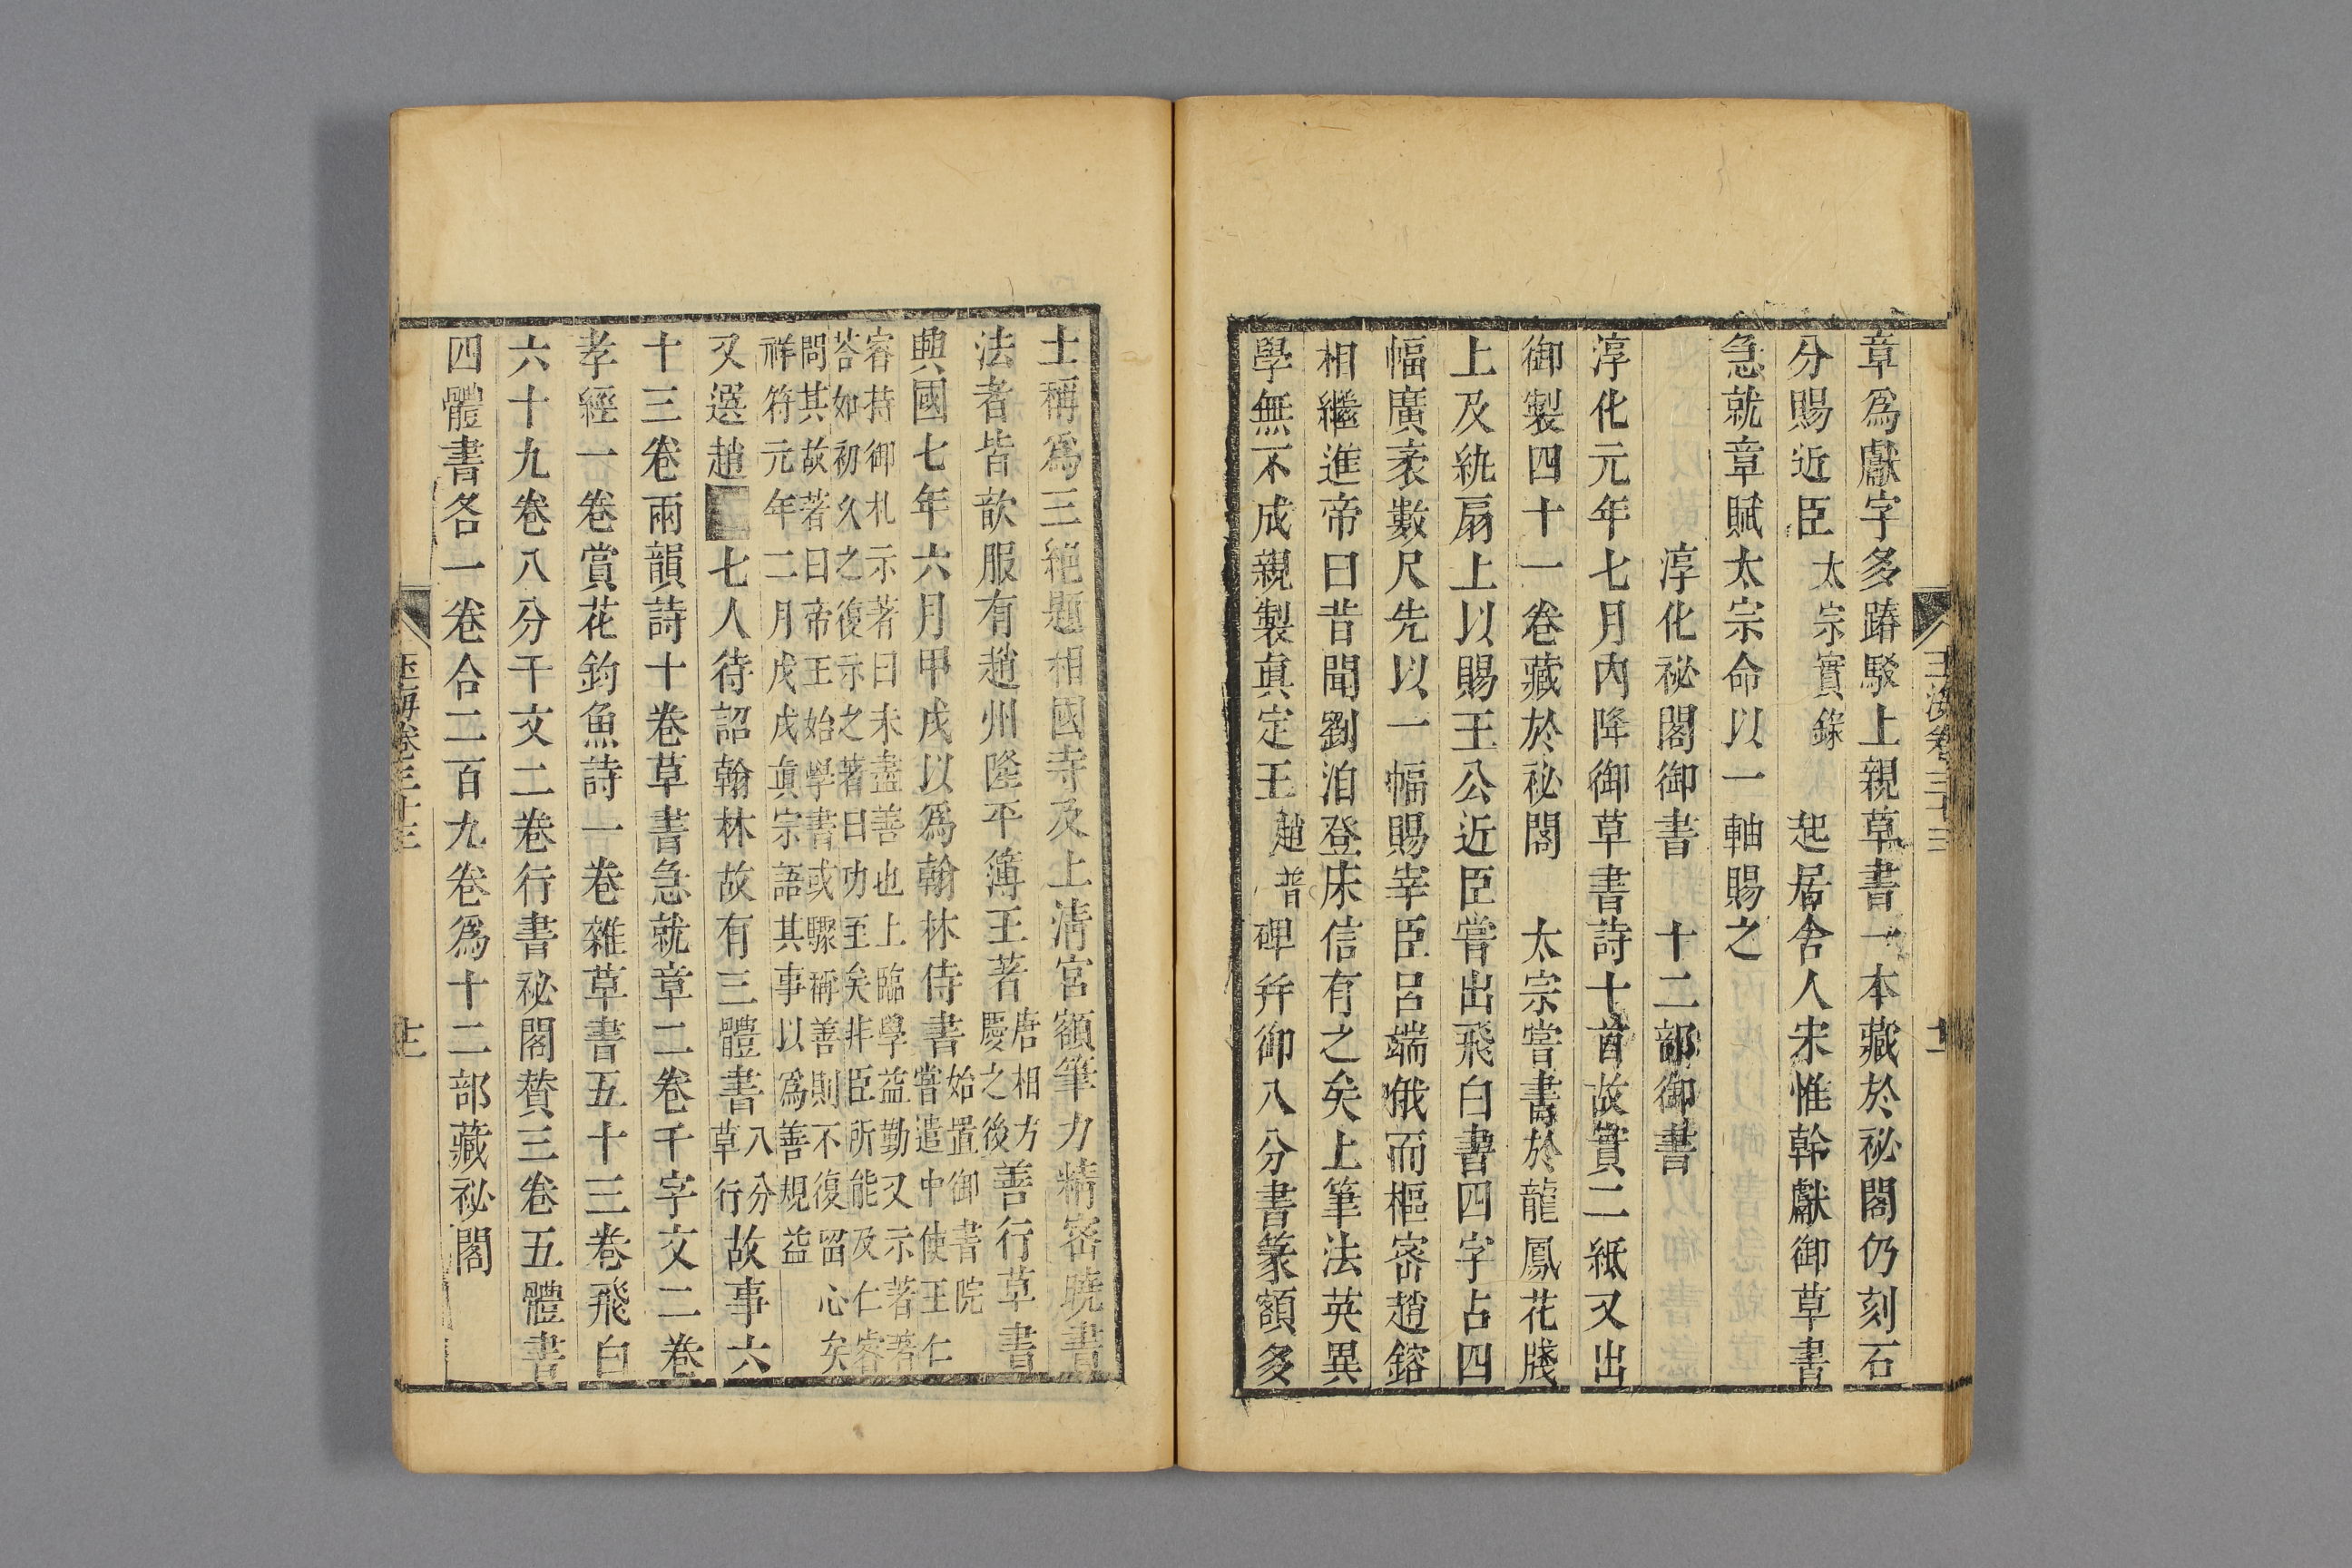 玉海卷三十三
章爲獻字多踳駁上親草書一本藏於祕閣仍刻石
分賜近臣太宗實錄 起居舍人宋惟幹獻御草書
急就章賦太宗命以一軸賜之
淳化祕閣御書 十二部御書
淳化元年七月內降御草書詩十首故實二紙又出
御製四十一卷藏於祕閣 太宗嘗書於龍鳳花牋
上及紈扇上以賜王公近臣嘗出飛白書四字占四
幅廣袤數尺先以一幅賜宰臣呂端俄而樞密趙鎔
相繼進帝曰昔聞劉洎登床信有之矣上筆法英異
學無不成親製眞定王趙普碑幷御八分書篆額多
士稱爲三絕題相國寺及上清宮額筆力精密曉書
法者皆歆服有趙州隆平簿王著唐相方慶之後善行草書
興國七年六月甲戌以爲翰林侍書始置御書院嘗遣中使王仁
睿持御札示著曰未盡善也上臨學益勤又示著著
荅如初久之復示之著曰功至矣非臣所能及仁睿
問其故著曰帝王始學書或驟稱善則不復留心矣
祥符元年二月戊戌眞宗語其事以爲善規益
又選趙七人待詔翰林故有三體書八分草行故事六
十三卷兩韻詩十卷草書急就章二卷千字文二卷
孝經一卷賞花釣魚詩一卷雜草書五十三卷飛白
六十九卷八分千文二卷行書祕閣贊三卷五體書
四體書各一卷合二百九卷爲十二部藏祕閣
玉海卷三十三